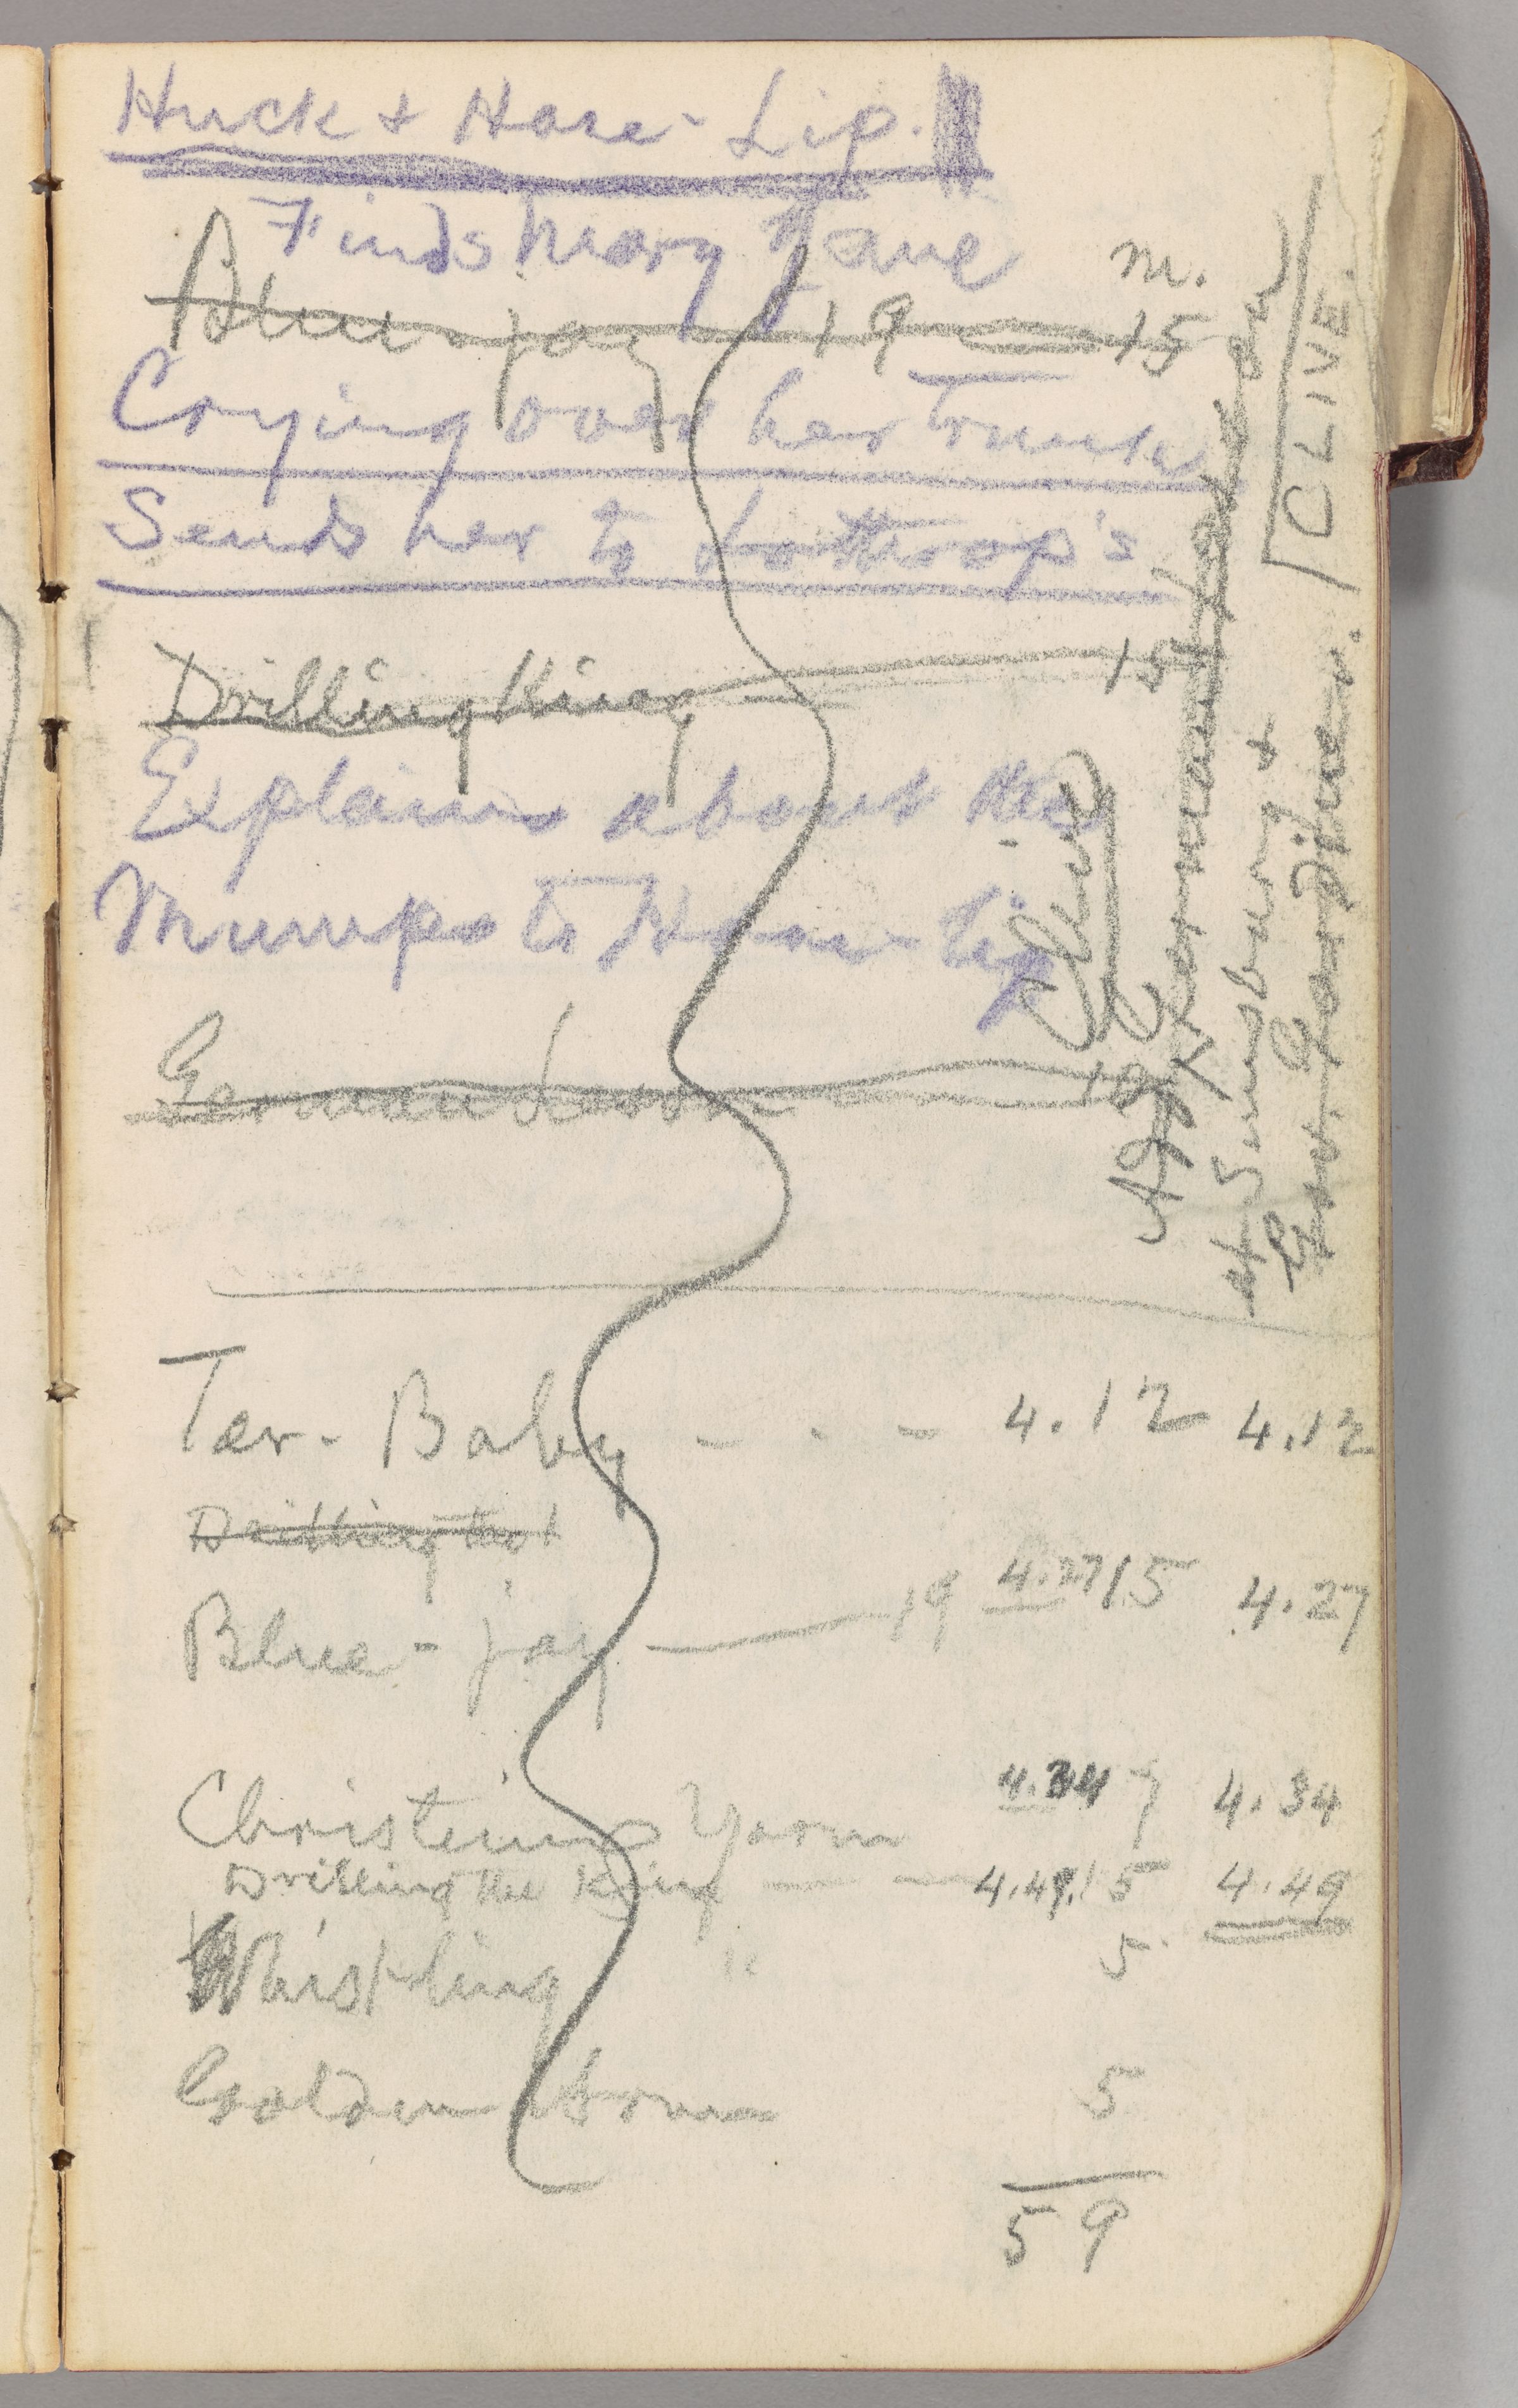 Huck & Hare-Lip.
Finds Mary Jane
m.
Blue-jay 19 15
Crying over her trunk
Sends her to Lothrop's
Drilling King 15
Explains about the
Mumps to Hare-Lip
German Lesson
Tar-Baby - - - 4.12 4.12
Blue-jay — 19 4.27 15 4.27
Christening Yarn 4.34 7 4.34
Drilling the King — — 4.49. 15 4.49
Whistling " 5
Golden Arm 5
59
at Sunbury &
CLIVE.